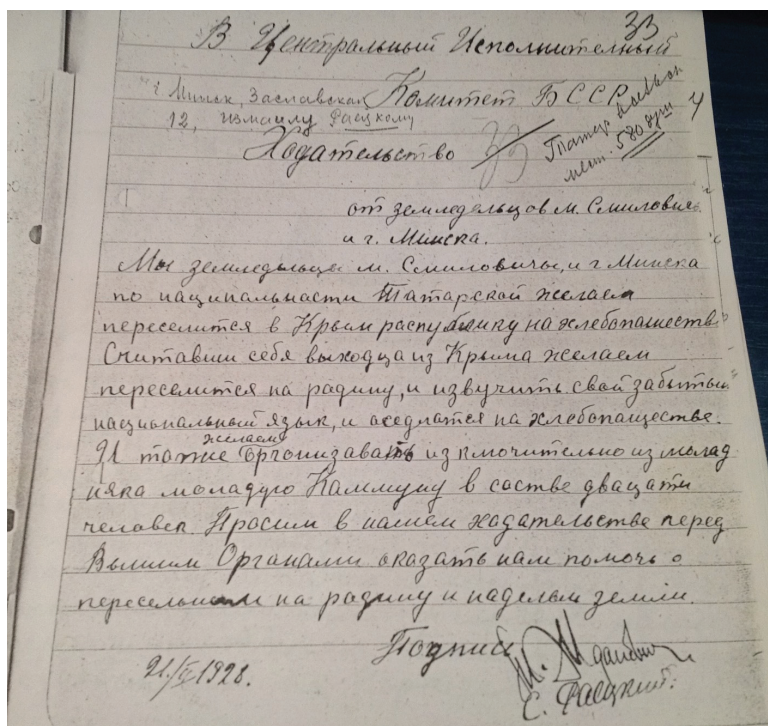 33
В Центральный Исполнительный
г. Минск, Заславская Комитет БССР
12, Измаилу Фаецкому
Ходательство 33
Татар
мест. 580 душ
от земледельцов м. Смиловичь
и г. Минска.
Мы земледельцы м. Смиловичы, и г Минска
по нацинальности Татарской желаем
переселится в Крым распублику на хлебопашеств
Считавши себя выходца из Крыма желаем
переселится на радину, и извучить свой забытый
национальный язык, и оседлатся на хлебопаществе.
желаем
И также организавать изключительно из молад
няка моладую Каммуну в состве двацати
человек. Просим в нашем ходательстве перед
Вышим Органами оказать нам помочь о
пересельнии на радину и наделом земли.
Подписи
21/V 1928.
С. Фаецкий.